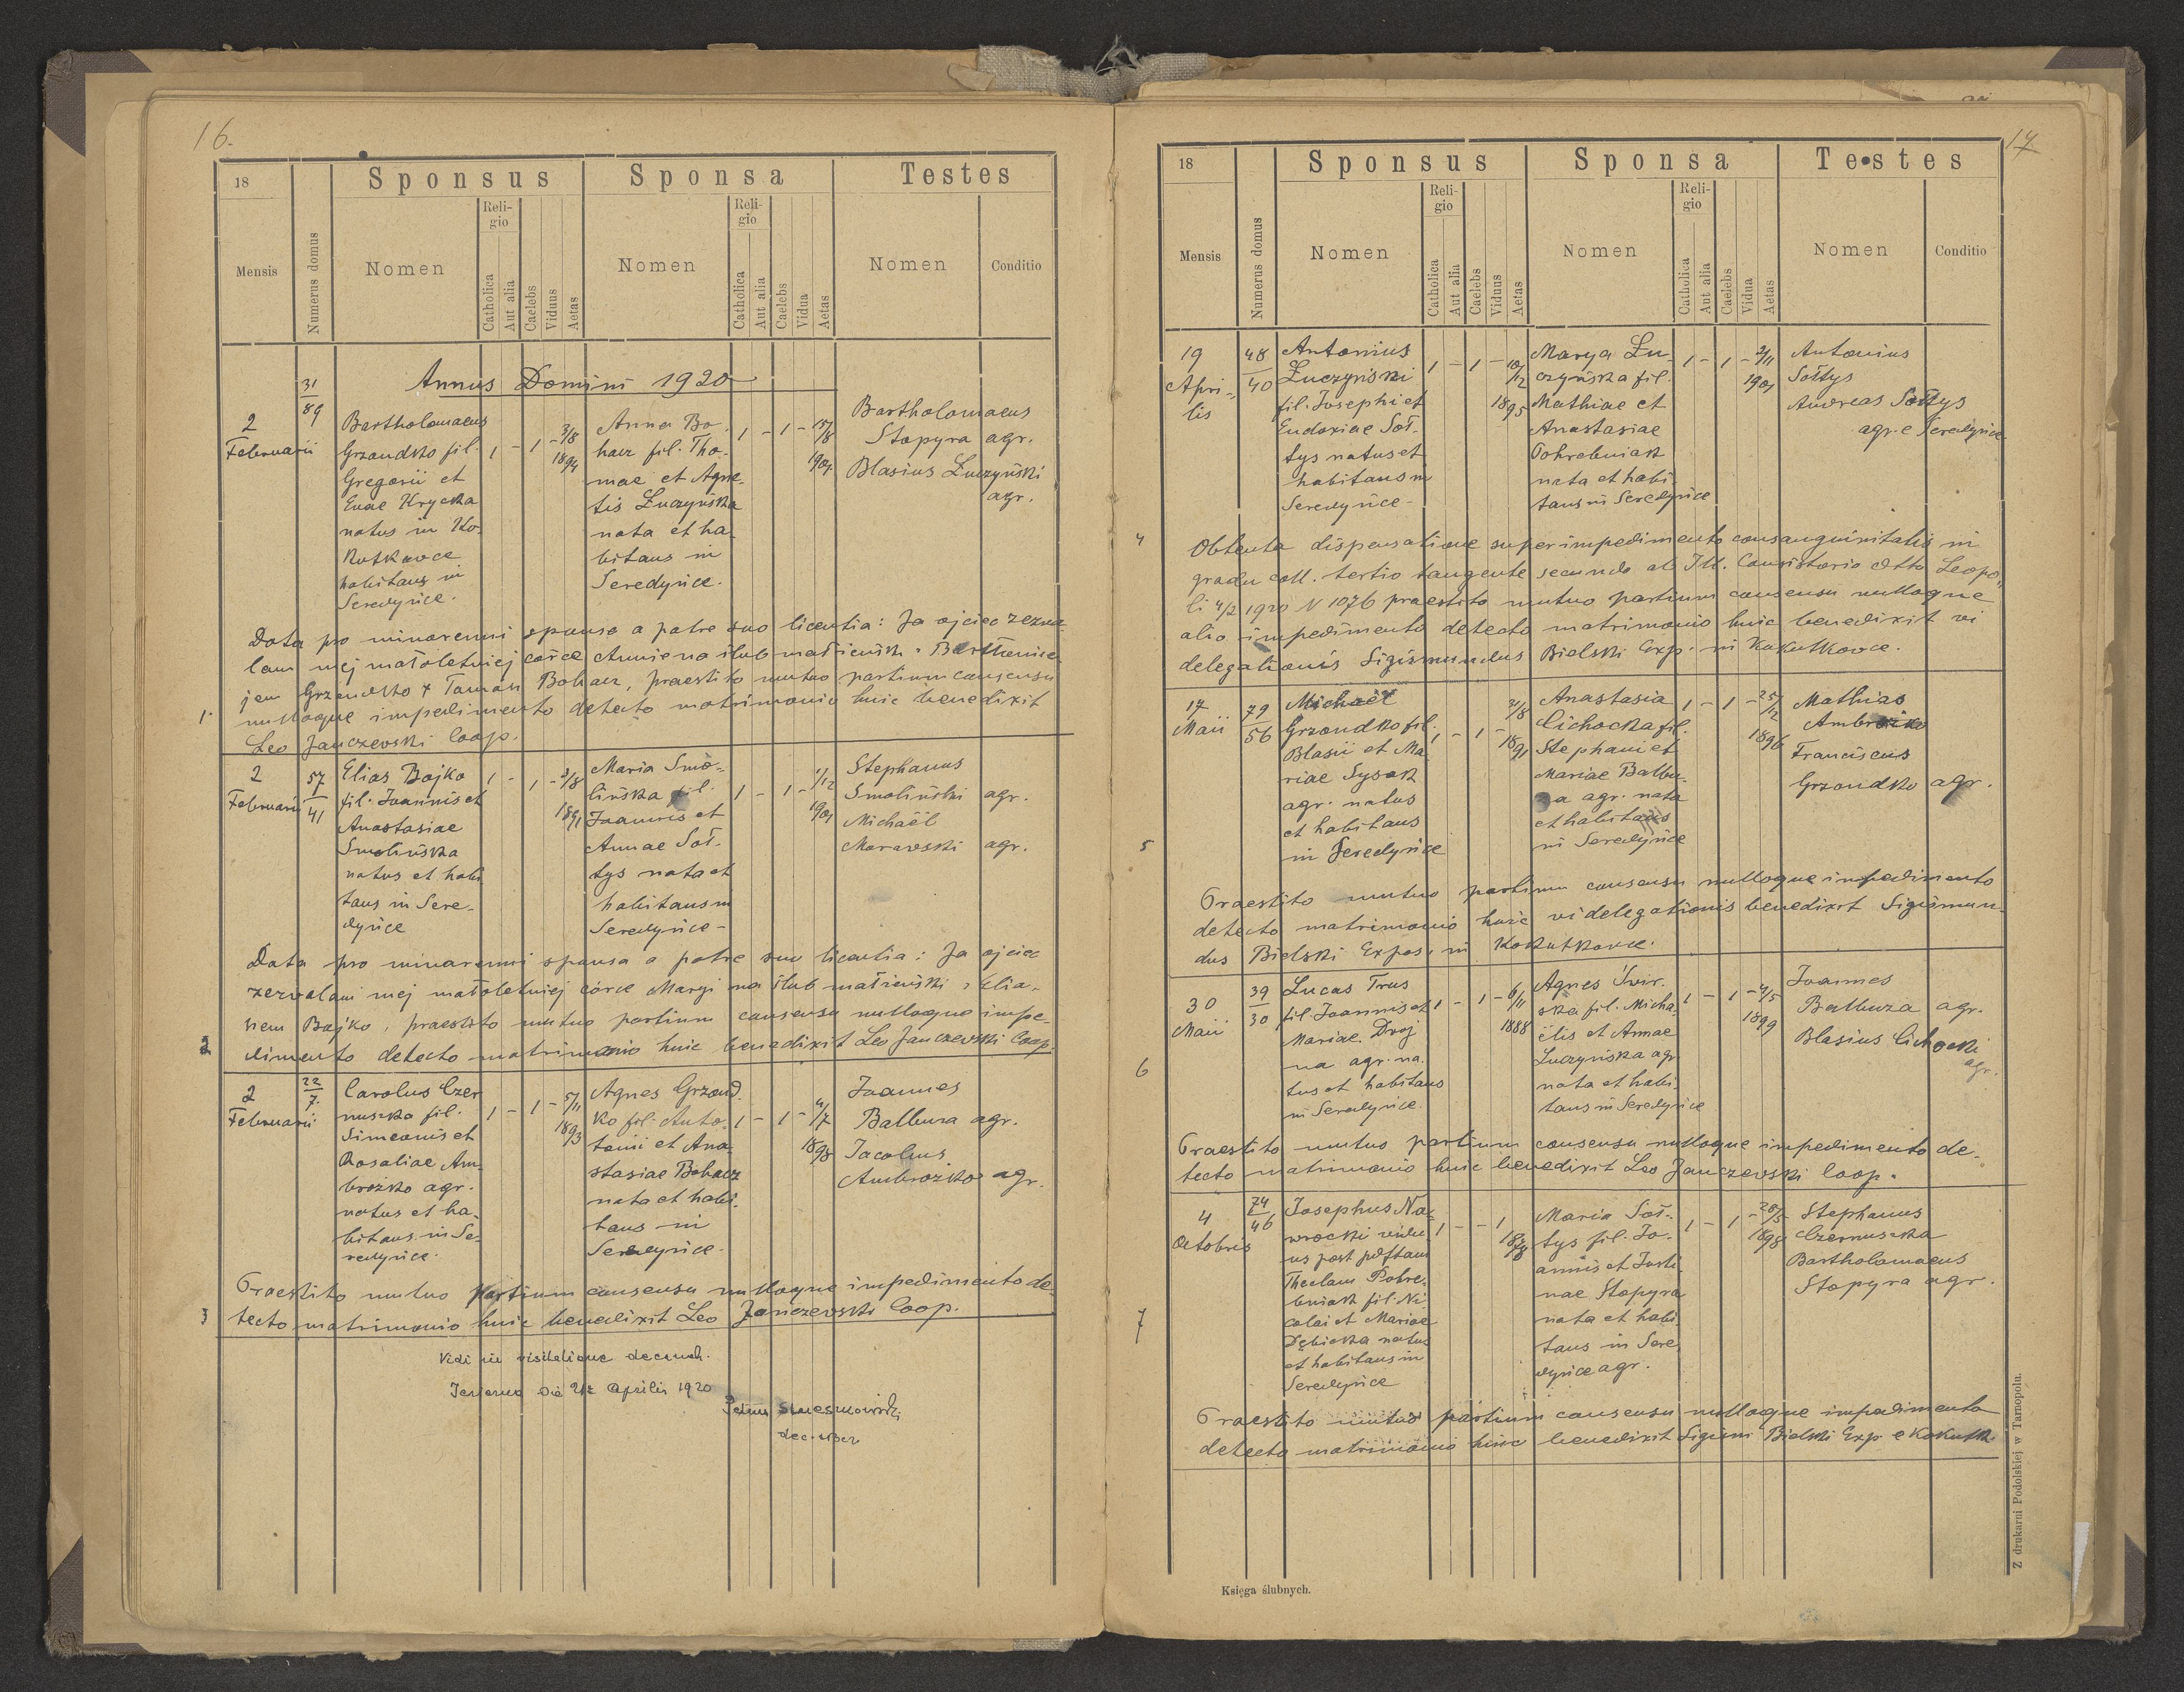 16.
18
Sponsus
Sponsa
Testes
Mensis
Numerus domus
Nomen
Religio
Catholica
Aut alia
Caelebs
Viduus
Aetas
Nomen
Religio
Catholica
Aut alia
Caelebs
Vidua
Aetas
Nomen
Conditio
Annus Domini 1920
2
Februarii
31
89
Bartholomaeus
Grzondko fil.
Gregorii et
Evae Krycka
natus in Ko-
kutkowce
habitans in
Seredyńce.
1 - 1 - 3/8
1894
Anna Bo-
hacz fil. Tho-
mae et Agne-
tis Łuczyńska
nata et ha-
bitans in
Seredyńce.
1 - 1 - 15/8
1901
Bartholomaeus
Stopyra agr.
Blasius Łuczyński
agr.
Data pro minorenni sponsa a patre suo licentia: Ja ojciec zezwa-
lam mej małoletniej córce Annie na ślub małżeńsk. z Bartłomie-
jem Grzondko + Tomasz Bohacz, praestito mutuo partium consensu
1. nulloque impedimento detecto matrimonio huic benedixit
Leo Janczewski Coop.
2
Februarii
57
41
Elias Bojko
fil. Joannis et
Anastasiae
Smolińska
natus et habi
tans in Sere-
dyńce
1 - 1 - 2/8
1891
Maria Smo-
lińska fil.
Joannis et
Annae Soł-
tys nata et
habitans in
Seredyńce -
1 - 1 - 1/12
1901
Stephanus
Smoliński agr.
Michaël
Morawski agr.
Data pro minorenni sponsa a patre suo licentia: Ja ojciec
zezwalam mej małoletniej córce Maryi na ślub małżeński z Elia-
szem Bojko, praestito mutuo partium consensu nulloque impe-
2 dimento detecto matrimonio huic benedixit Leo Janczewski Coop.
2
Februarii
22
7.
Carolus Czer
nuszka fil.
Simeonis et
Rosaliae Am-
brożko agr.
natus et ha-
bitans in Se-
redyńce.
1 - 1 - 5/11
1893
Agnes Grzond
ko fil. Anto-
tonii et Ana-
stasiae Bohacz
nata et habi-
tans in
Seredyńce.
1 - 1 - 4/7
1898
Joannes
Balbuza agr.
Jacobus
Ambrożko agr.
Praestito mutuo partium consensu nulloque impedimento de-
3 tecto matrimonio huic benedixit Leo Janczewski Coop.
Vidi in visitatione decanali.
die Aprilis 1920
Petrus
17
18
Sponsus
Sponsa
Testes
Mensis
Numerus domus
Nomen
Religio
Catholica
Aut alia
Caelebs
Viduus
Aetas
Nomen
Religio
Catholica
Aut alia
Caelebs
Vidua
Aetas
Nomen
Conditio
19
Apri-
lis
48
40
Antonius
Łuczyński
fil. Josephi et
Eudoxiae Soł-
tys natus et
habitans in
Seredyńce -
1 - 1 - 10/12
1895
Marya Łu-
czyńska fil.
Mathiae et
Anastasiae
Pohrebniak
nata et habi-
tans in Seredyńce
1 - 1 - 2/11
1901
Antonius
Sołtys
Andreas Sołtys
agr. e Seredyńce
4 Obtenta dispensatione super impedimento consanguinitatis in
gradu coll. tertio tangente secundo ab Ill. Consistorio Leopo-
li 4/2 1920 N 1076 praestito mutuo partium consensu nulloque
alio impedimento detecto matrimonio huic benedixit vi
delegationis Sigismundus Bielski Exp. in Kokutkowce.
17
Maii
79
56
Michaël
Grzondko fil.
Blasii et Ma-
riae Sysak
agr. natus
et habitans
in Seredyńce
1 - 1 - 2/8
1891
Anastasia
Cichocka fil.
Stephani et
Mariae Balbu-
za agr. nata
et habitans
in Seredyńce
1 - 1 - 25/12
1896
Mathias
Ambrożko
Franciscus
Grzondko agr.
5
Praestito mutuo partium consensu nulloque impedimento
detecto matrimonio huic vi delegationis benedixit Sigismun-
dus Bielski Expos. in Kokutkowce.
30
Maii
39
30
Lucas Trus
fil. Joannis et
Mariae Droj
na agr. na-
tus et habitans
in Seredyńce.
1 - 1 - 6/11
1888
Agnes Świr-
ska fil. Micha-
ëlis et Annae
Łuczyńska agr.
nata et habi-
tans in Seredyńce
1 - 1 - 4/5
1899
Joannes
Balbuza agr.
Blasius Cichocki
agr.
6
Praestito mutuo partium consensu nulloque impedimento de-
tecto matrimonio huic benedixit Leo Janczewski Coop.
4
Octobris
74
46
Josephus Na-
wrocki vidu
us post
Theclam Pohre-
bniak fil. Ni-
colai et Mariae
Dębicka natus
et habitans in
Seredyńce
1 - - 1
Maria Soł-
tys fil. Jo-
annis et Justi-
nae Stopyra
nata et habi-
tans in Sere-
dyńce agr.
1 - 1 - 28/5
1898
Stephanus
Czernuszka
Bartholomaeus
Stopyra agr.
7
Praestito mutuo partium consensu nulloque impedimento
detecto matrimonio huic benedixit Sigism Bielski Exp. e Kokutk.
Księga ślubnych.
Z drukarni Podolskiej w Tarnopolu.